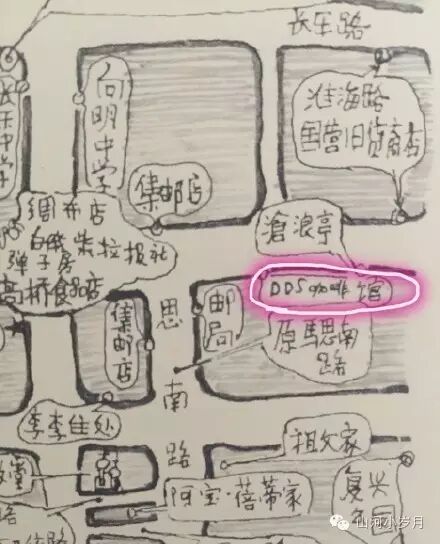 长乐路
长乐中学
向明中学
淮海路
国营旧货商店
集邮店
绸布店
白俄
弹子房
柴拉报社
高桥食品店
沧浪亭
DDS咖啡馆
邮局
集邮店
原马思南
路
思
南
路
李李住处
祖父家
阿宝·蓓蒂家
复兴
公园
山河小岁月